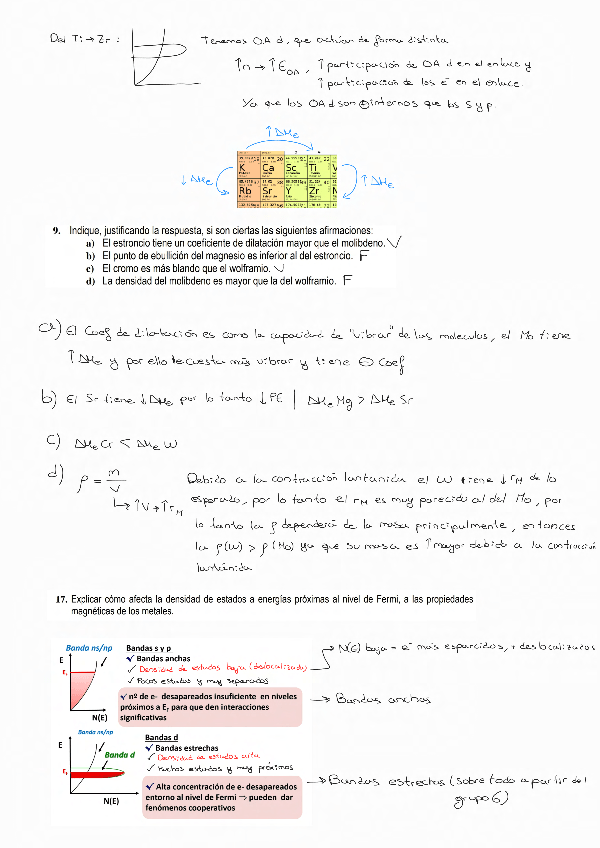 Del Ti → Zr :
Tenemos OA d, que actúan de forma distinta
↑n → ↑E OA, ↑ participación de OA d en el enlace y
↑ participación de los e⁻ en el enlace.
Ya que los OA d son ⊕ internos que los s y p.
↑ΔHe
↓ΔHe
↑ΔHe
K Ca Sc Ti V
Rb Sr Y Zr N
9. Indique, justificando la respuesta, si son ciertas las siguientes afirmaciones:
a) El estroncio tiene un coeficiente de dilatación mayor que el molibdeno. V
b) El punto de ebullición del magnesio es inferior al del estroncio. F
c) El cromo es más blando que el wolframio. V
d) La densidad del molibdeno es mayor que la del wolframio. F
a) El Coef de dilatación es como la capacidad de "vibrar" de las moleculas, el Mo tiene
↑ΔHe y por ello le cuesta más vibrar y tiene ⊖ Coef
b) El Sr tiene ↓ΔHe por lo tanto ↓PE | ΔHe Mg > ΔHe Sr
c) ΔHe Cr < ΔHe W
d) ρ = m/V
↳ ↑V → ↑rM
Debido a la contracción lantánida el W tiene ↓rM de lo
esperado, por lo tanto el rM es muy parecido al del Mo, por
lo tanto la ρ dependerá de la masa principalmente, entonces
la ρ(W) > ρ(Mo) ya que su masa es ↑ mayor debido a la contracción
lantánida
17. Explicar cómo afecta la densidad de estados a energías próximas al nivel de Fermi, a las propiedades
magnéticas de los metales.
Banda ns/np
E
EF
N(E)
Bandas s y p
✓ Bandas anchas
✓ Densidad de estados baja (deslocalizado)
✓ Pocos estados y muy separados
✓ nº de e- desapareados insuficiente en niveles
próximos a EF para que den interacciones
significativas
→ N(E) baja → e⁻ más esparcidos, + deslocalizados
→ Bandas anchas
Banda ns/np
E
Banda d
EF
N(E)
Bandas d
✓ Bandas estrechas
✓ Densidad de estados alta
✓ Muchos estados y muy próximos
✓ Alta concentración de e- desapareados
entorno al nivel de Fermi ⇒ pueden dar
fenómenos cooperativos
→ Bandas estrechas (sobre todo a partir del
grupo 6)